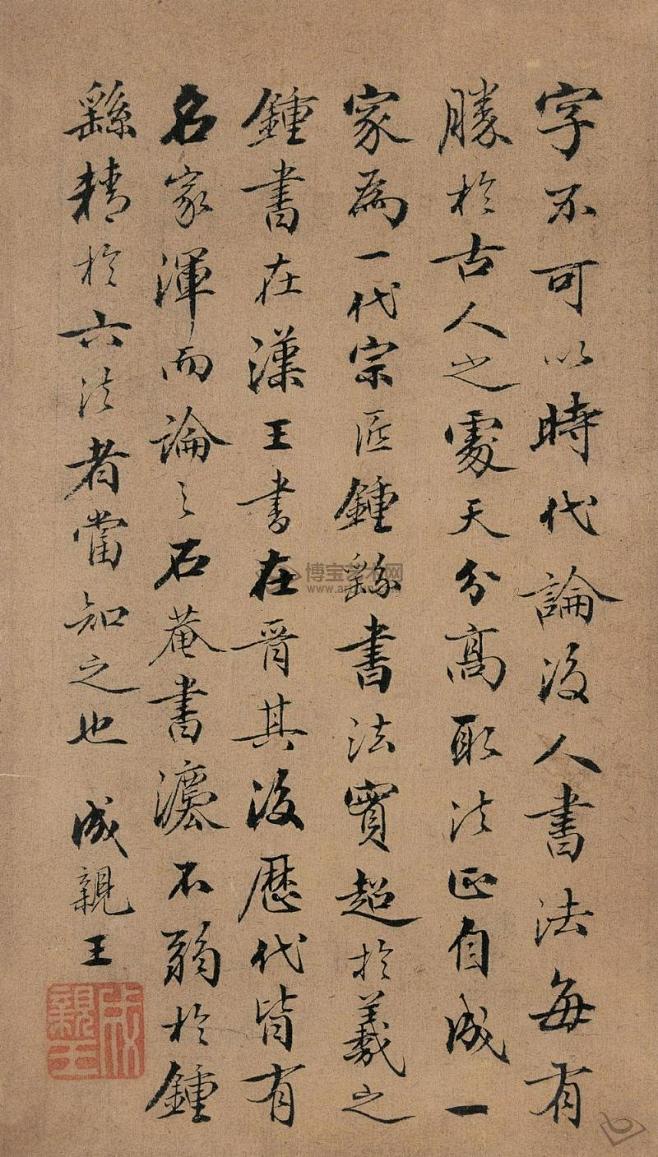 字不可以時代論後人書法每有
勝於古人之處天分高取法正自成一
家為一代宗匠鍾繇書法實超於羲之
鍾書在漢王書在晉其後歷代皆有
名家渾而論之石菴書灋不弱於鍾
繇精於六法者當知之也 成親王
成親王
博宝艺术网